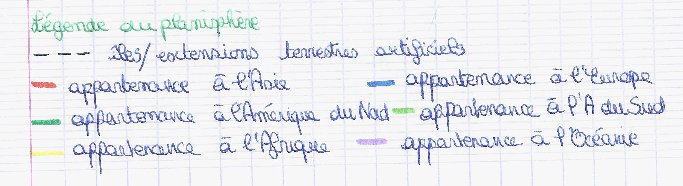 Légende du planisphère
--- Iles/extensions terrestres artificiels
appartenance à l'Asie
appartenance à l'Europe
appartenance à l'Amérique du Nord
appartenance à l'A du Sud
appartenance à l'Afrique
appartenance à l'Océanie